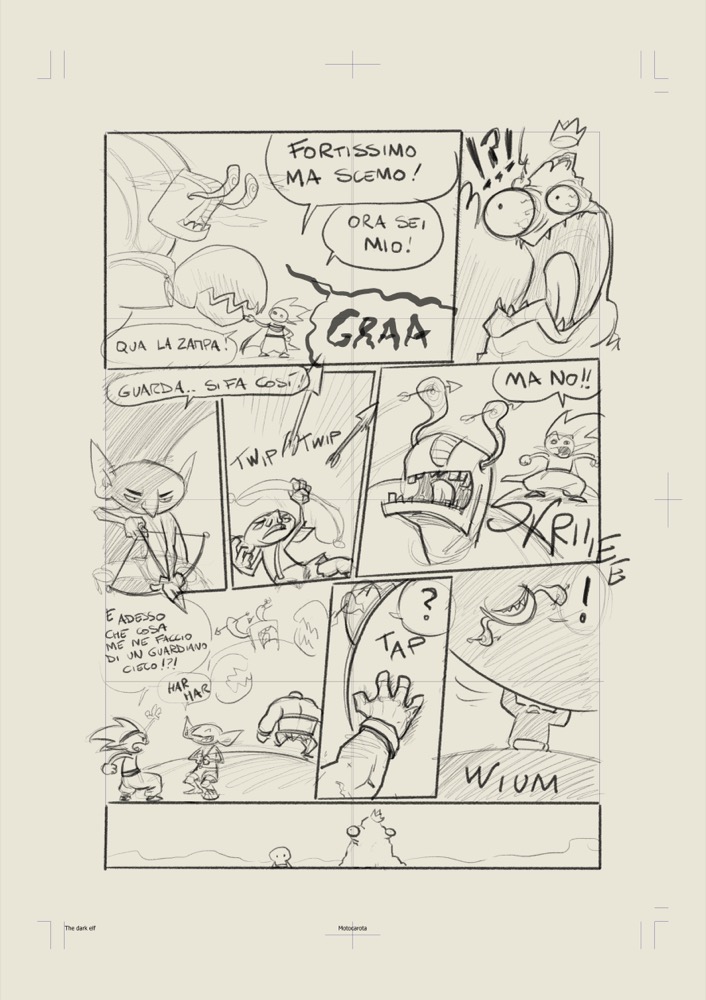 FORTISSIMO
MA SCEMO!
ORA SEI
MIO!
!?!!
QUA LA ZAMPA!
GRAA
GUARDA.. SI FA COSÍ!
TWIP TWIP
MA NO!!
SKRIII
E ADESSO
CHE COSA
ME NE FACCIO
DI UN GUARDIANO
CIECO!?!
HAR
HAR
?
TAP
!
WIUM
The dark elf
Motocarota